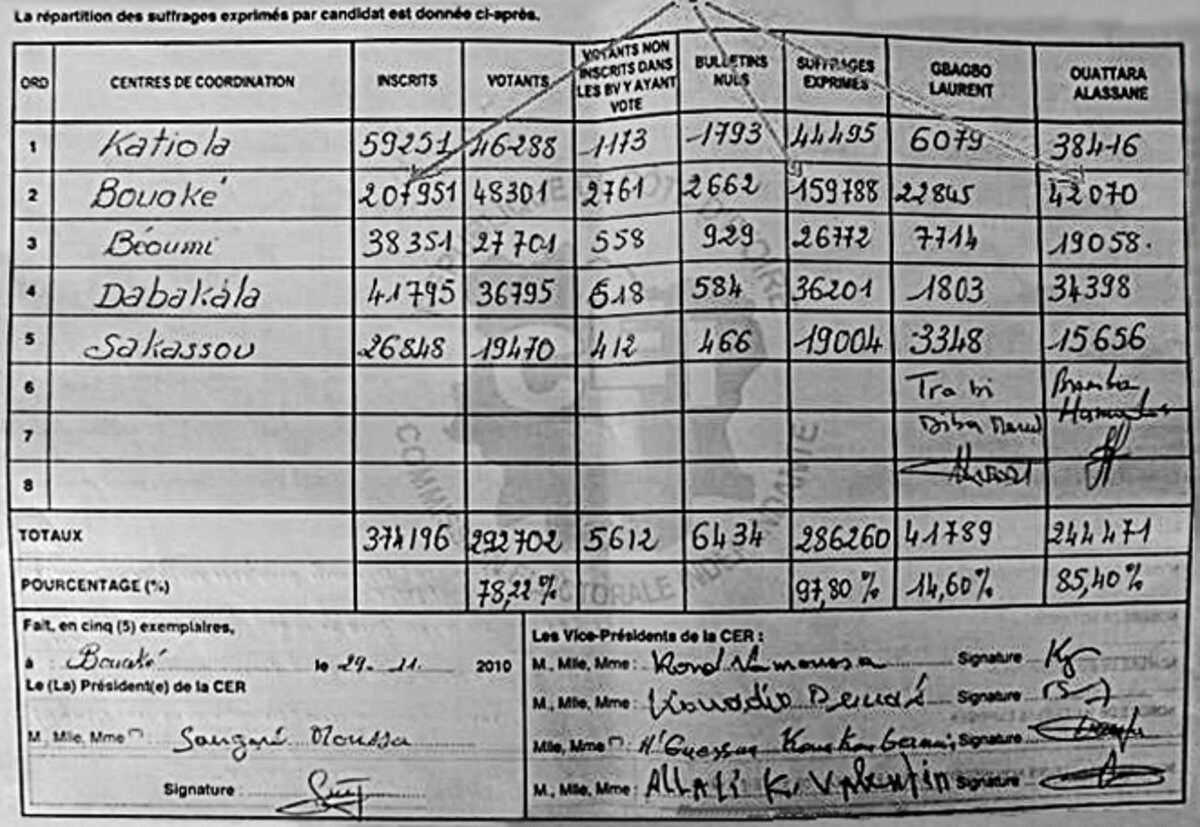 La répartition des suffrages exprimés par candidat est donnée ci-après.
ORD CENTRES DE COORDINATION INSCRITS VOTANTS VOTANTS NON INSCRITS DANS LES BV Y AYANT VOTE BULLETINS NULS SUFFRAGES EXPRIMES GBAGBO LAURENT OUATTARA ALASSANE
1 Katiola 59251 46288 1173 1793 44495 6079 38416
2 Bouaké 207951 48301 2761 2662 159788 22845 42070
3 Béoumi 38351 27701 558 929 26772 7714 19058.
4 Dabakala 41795 36795 618 584 36201 1803 34398
5 Sakassou 26848 19470 412 466 19004 3348 15656
6 Tra bi Bamba
7 Diba
8
TOTAUX 374196 292702 5612 6434 286260 41789 244471
POURCENTAGE (%) 78,22% 97,80% 14,60% 85,40%
Fait, en cinq (5) exemplaires,
à : Bouaké le 29-11. 2010
Le (La) Président(e) de la CER
M., Mlle, Mme : Sangaré Moussa
Signature :
Les Vice-Présidents de la CER :
M., Mlle, Mme : Signature
M., Mlle, Mme : Kouadio Signature
Mlle, Mme : N'Guessan Signature
M., Mlle, Mme : ALLALI K. Valentin Signature